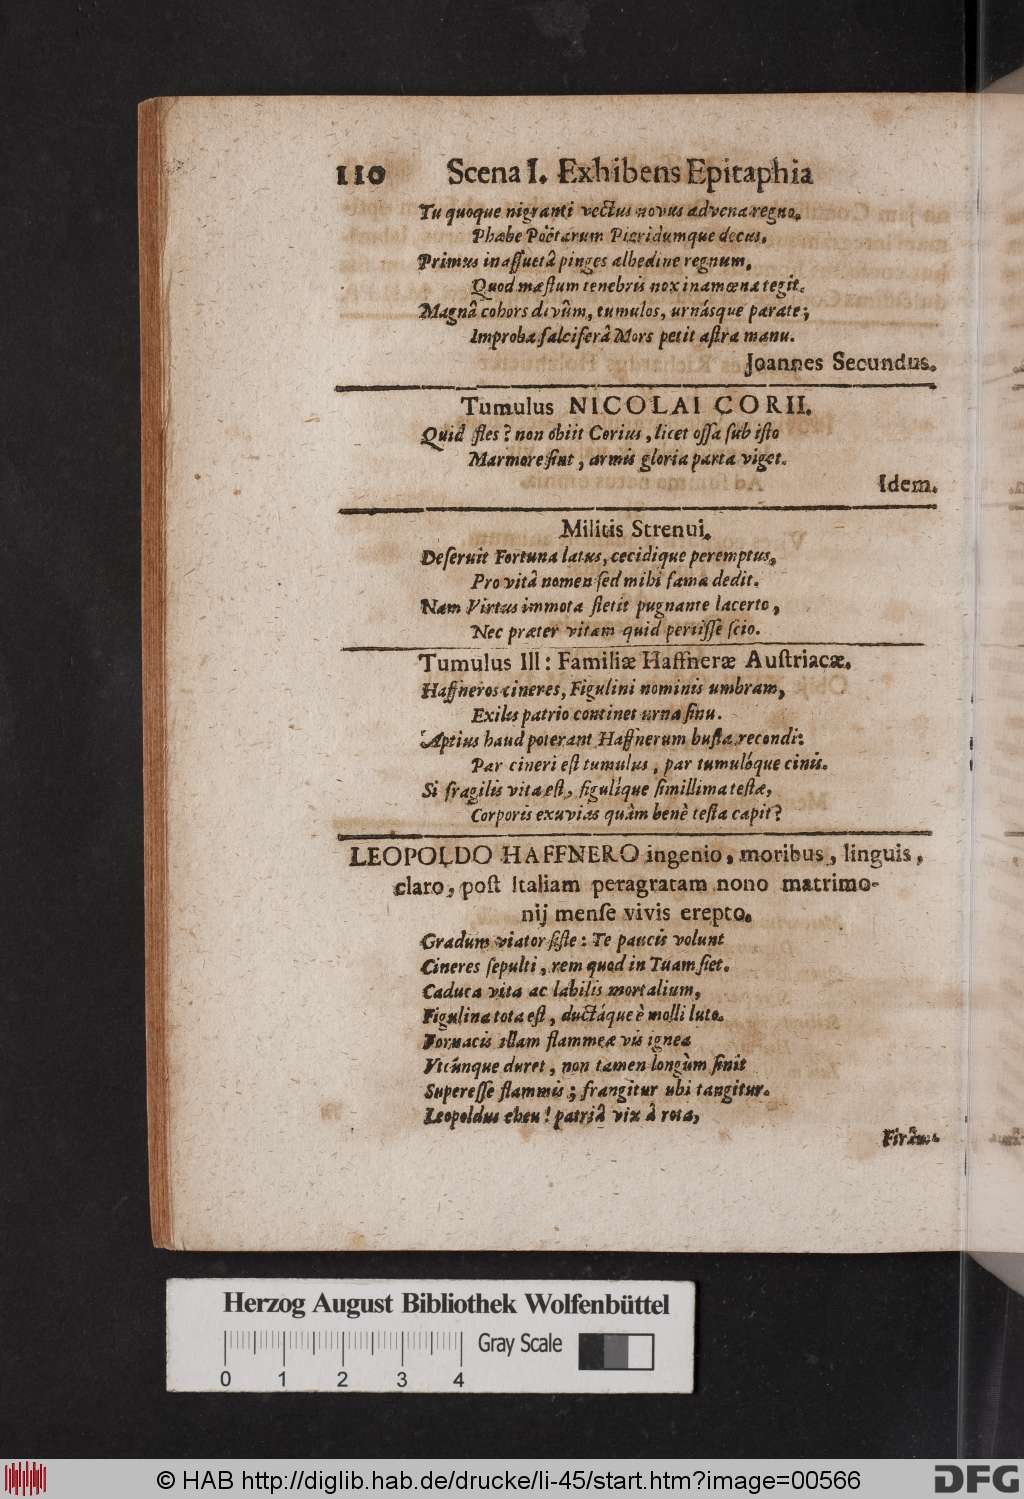 110 Scena I. Exhibens Epitaphia
Tu quoque nigranti vectus novus advena regno,
Phæbe Poëtarum Pieridumque decus,
Primus inaſſuetâ pinges albedine regnum,
Quod mæſtum tenebris nox inamœna tegit.
Magnâ cohors divûm, tumulos, urnásque parate;
Improba falciferâ Mors petit aſtra manu.
Joannes Secundus.
Tumulus NICOLAI CORII.
Quid fles? non obiit Corius, licet oſſa ſub iſto
Marmore ſint, armis gloria parta viget.
Idem.
Militis Strenui.
Deſeruit Fortuna latus, cecidique peremptus,
Pro vitâ nomen ſed mihi fama dedit.
Nam Virtus immota ſtetit pugnante lacerto,
Nec præter vitam quid periiſſe ſcio.
Tumulus III: Familiæ Haffneræ Auſtriacæ.
Haffneros cineres, Figulini nominis umbram,
Exiles patrio continet urna ſinu.
Aptius haud poterant Haffnerum buſta recondi:
Par cineri eſt tumulus, par tumulóque cinis.
Si fragilis vita eſt, figulíque ſimillima teſtæ,
Corporis exuvias quàm benè teſta capit?
LEOPOLDO HAFFNERO ingenio, moribus, linguis,
claro, poſt Italiam peragratam nono matrimo-
nij menſe vivis erepto.
Gradum viator ſiſte: Te paucis volunt
Cineres ſepulti, rem quod in Tuam fiet.
Caduca vita ac labilis mortalium,
Figulina tota eſt, ductáque è molli luto.
Fornacis illam flammeæ vis ignea
Vtcúnque duret, non tamen longùm ſinit
Supereſſe flammis; frangitur ubi tangitur.
Leopoldus eheu! patriâ vix â rota,
Firâm-
Herzog August Bibliothek Wolfenbüttel
Gray Scale
0 1 2 3 4
© HAB http://diglib.hab.de/drucke/li-45/start.htm?image=00566
DFG